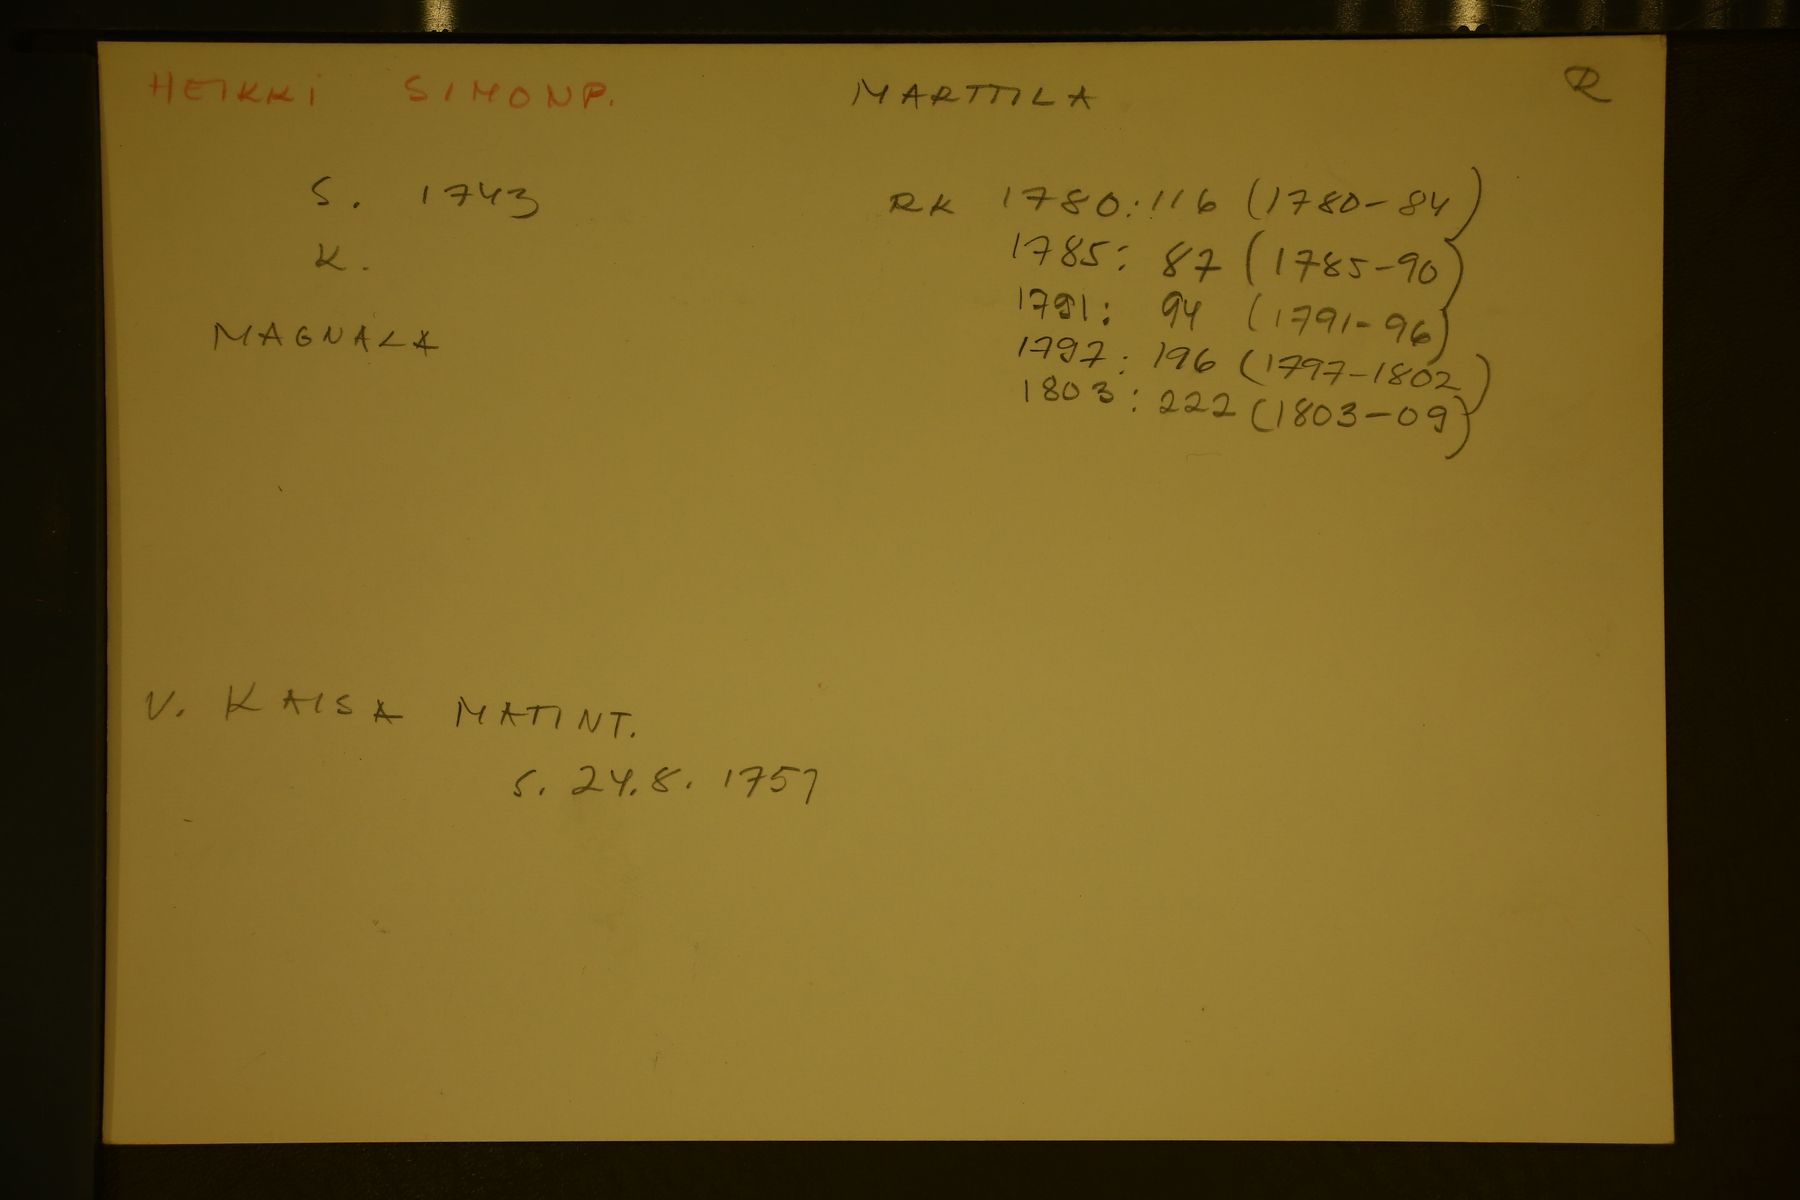 HEIKKI SIMONP. MARTTILA R
S. 1743
K.
MAGNALA
RK 1780:116 (1780-84)
1785: 87 (1785-90)
1791: 94 (1791-96)
1797: 196 (1797-1802)
1803: 222 (1803-09)
V. KAISA MATINT.
S. 24.8. 1757